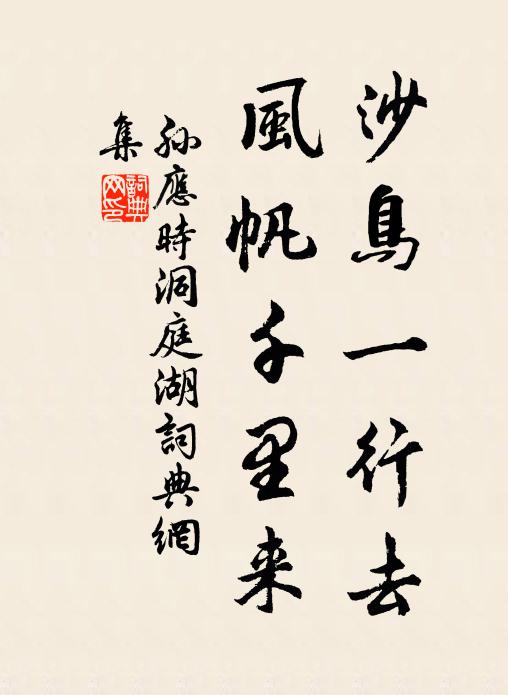 沙鳥一行去
風帆千里来
孫應時洞庭湖詞典網
集
詞典
网印